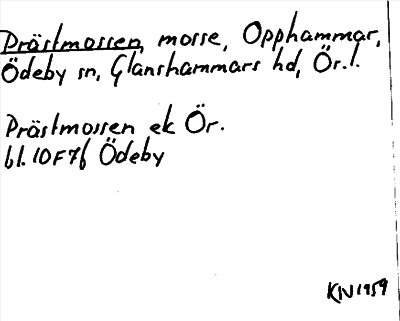 Prästmossen, mosse, Opphammar,
Ödeby sn, Glanshammars hd, Ör.l.
Prästmossen ek Ör.
bl. 10F7f Ödeby
KN 1959